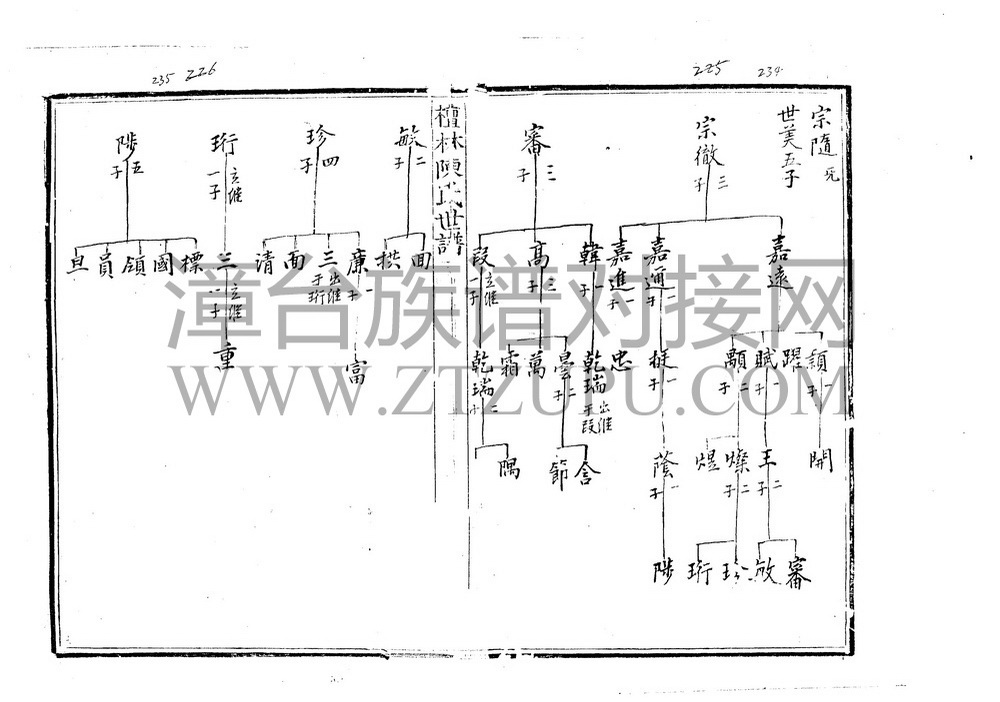 235 226
225 234
宗隨 兄
世美五子
宗徹 三子
嘉遠
嘉通 一子
嘉進 一子
穎 一子
躍
賦 一子
顒 二子
挺 一子
忠
開
王 二子
燦 二子
煜
蔭 一子
審
敏
珍
珩
陟
審 三子
韓 一子
高 三子
段 立繼 一子
乾瑞 出繼于段
曇 二子
萬
霜
乾瑞 二子
含
節
隅
檀林陳氏世譜
敏 二子
面
拱
珍 四子
廉 一子
三 出繼于珩
面
清
富
珩 立繼 一子
三 立繼 一子
重
陟 五子
標
國
領
員
旦
漳台族谱对接网
WWW.ZTZUPU.COM